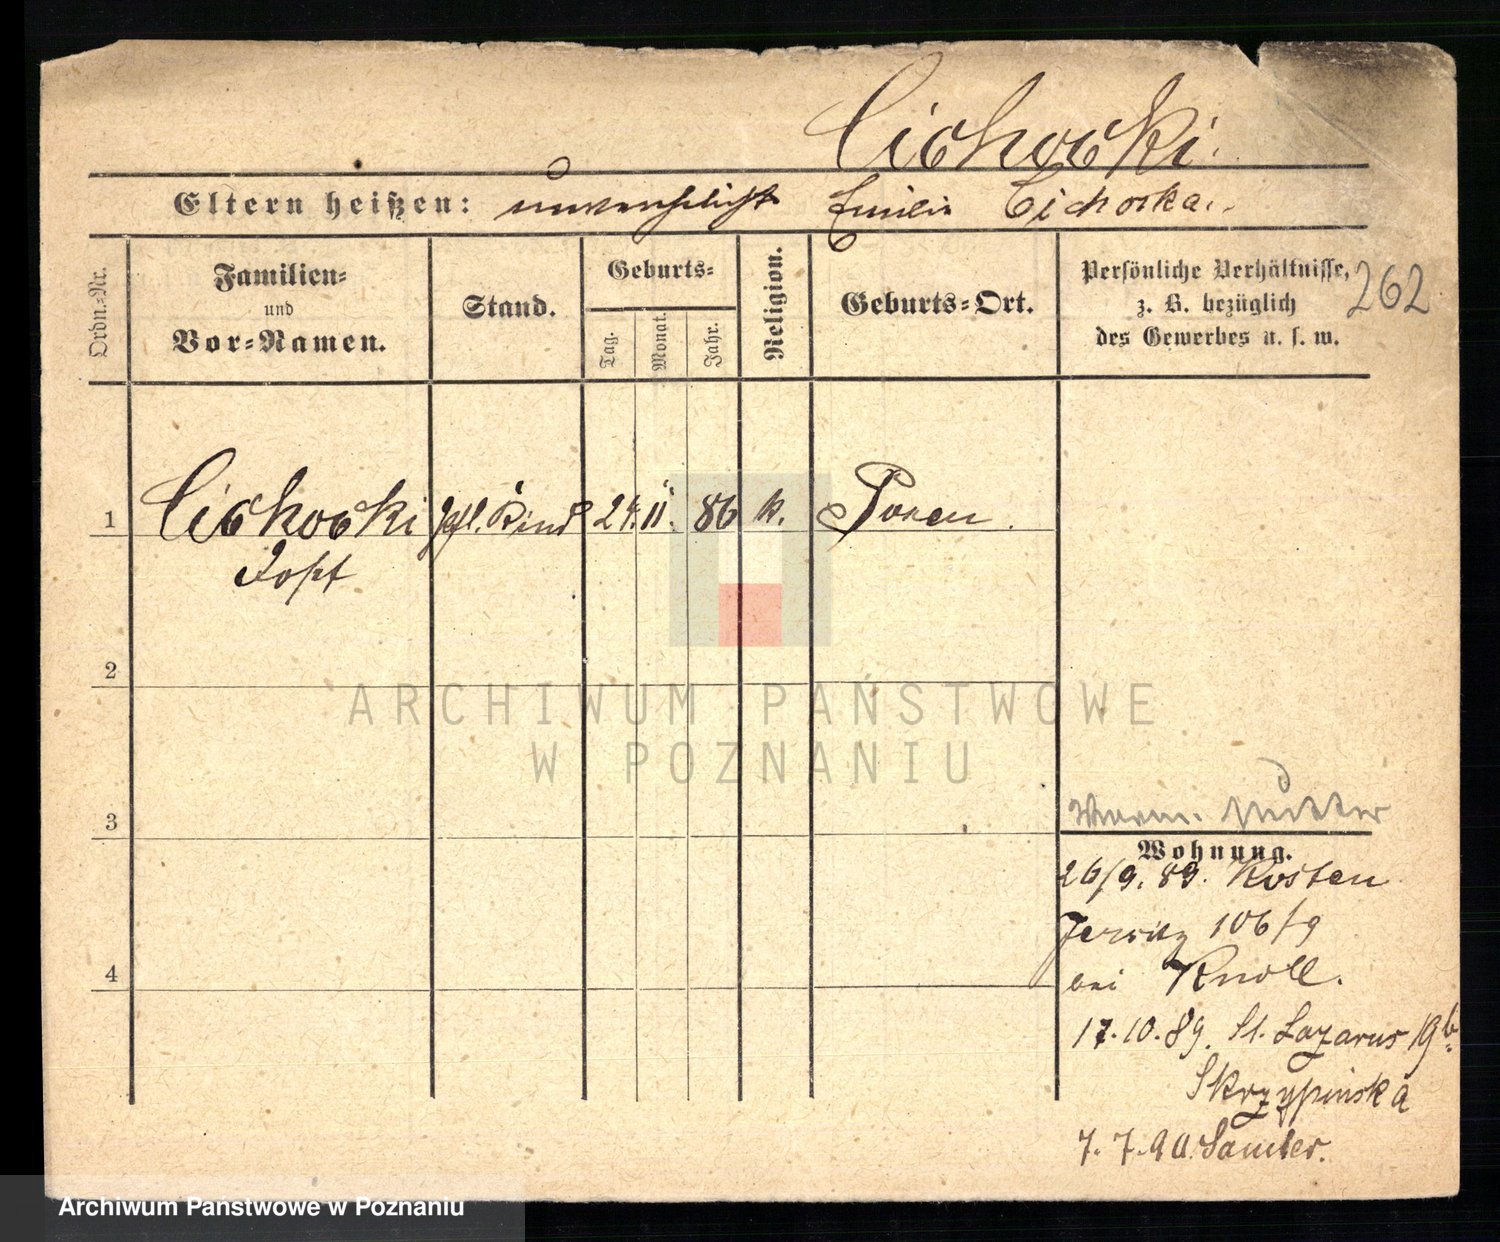 Cichocki.
Eltern heißen: unverehelicht Emilie Cichocka.
Ordn.-Nr.
Familien-
und
Vor-Namen.
Stand.
Geburts-
Tag.
Monat.
Jahr.
Religion.
Geburts-Ort.
Persönliche Verhältnisse,
z. B. bezüglich
des Gewerbes u. s. w.
262
1 Cichocki Kind 24. 11. 86 k. Posen.
2
3
4
Mutter
Wohnung.
26/9. 89. Kosten
Jersitz 106/9
bei Knoll.
17.10.89. St. Lazarus 19b.
Skrzypinska
7.7.90. Samter.
ARCHIWUM PAŃSTWOWE
W POZNANIU
Archiwum Państwowe w Poznaniu